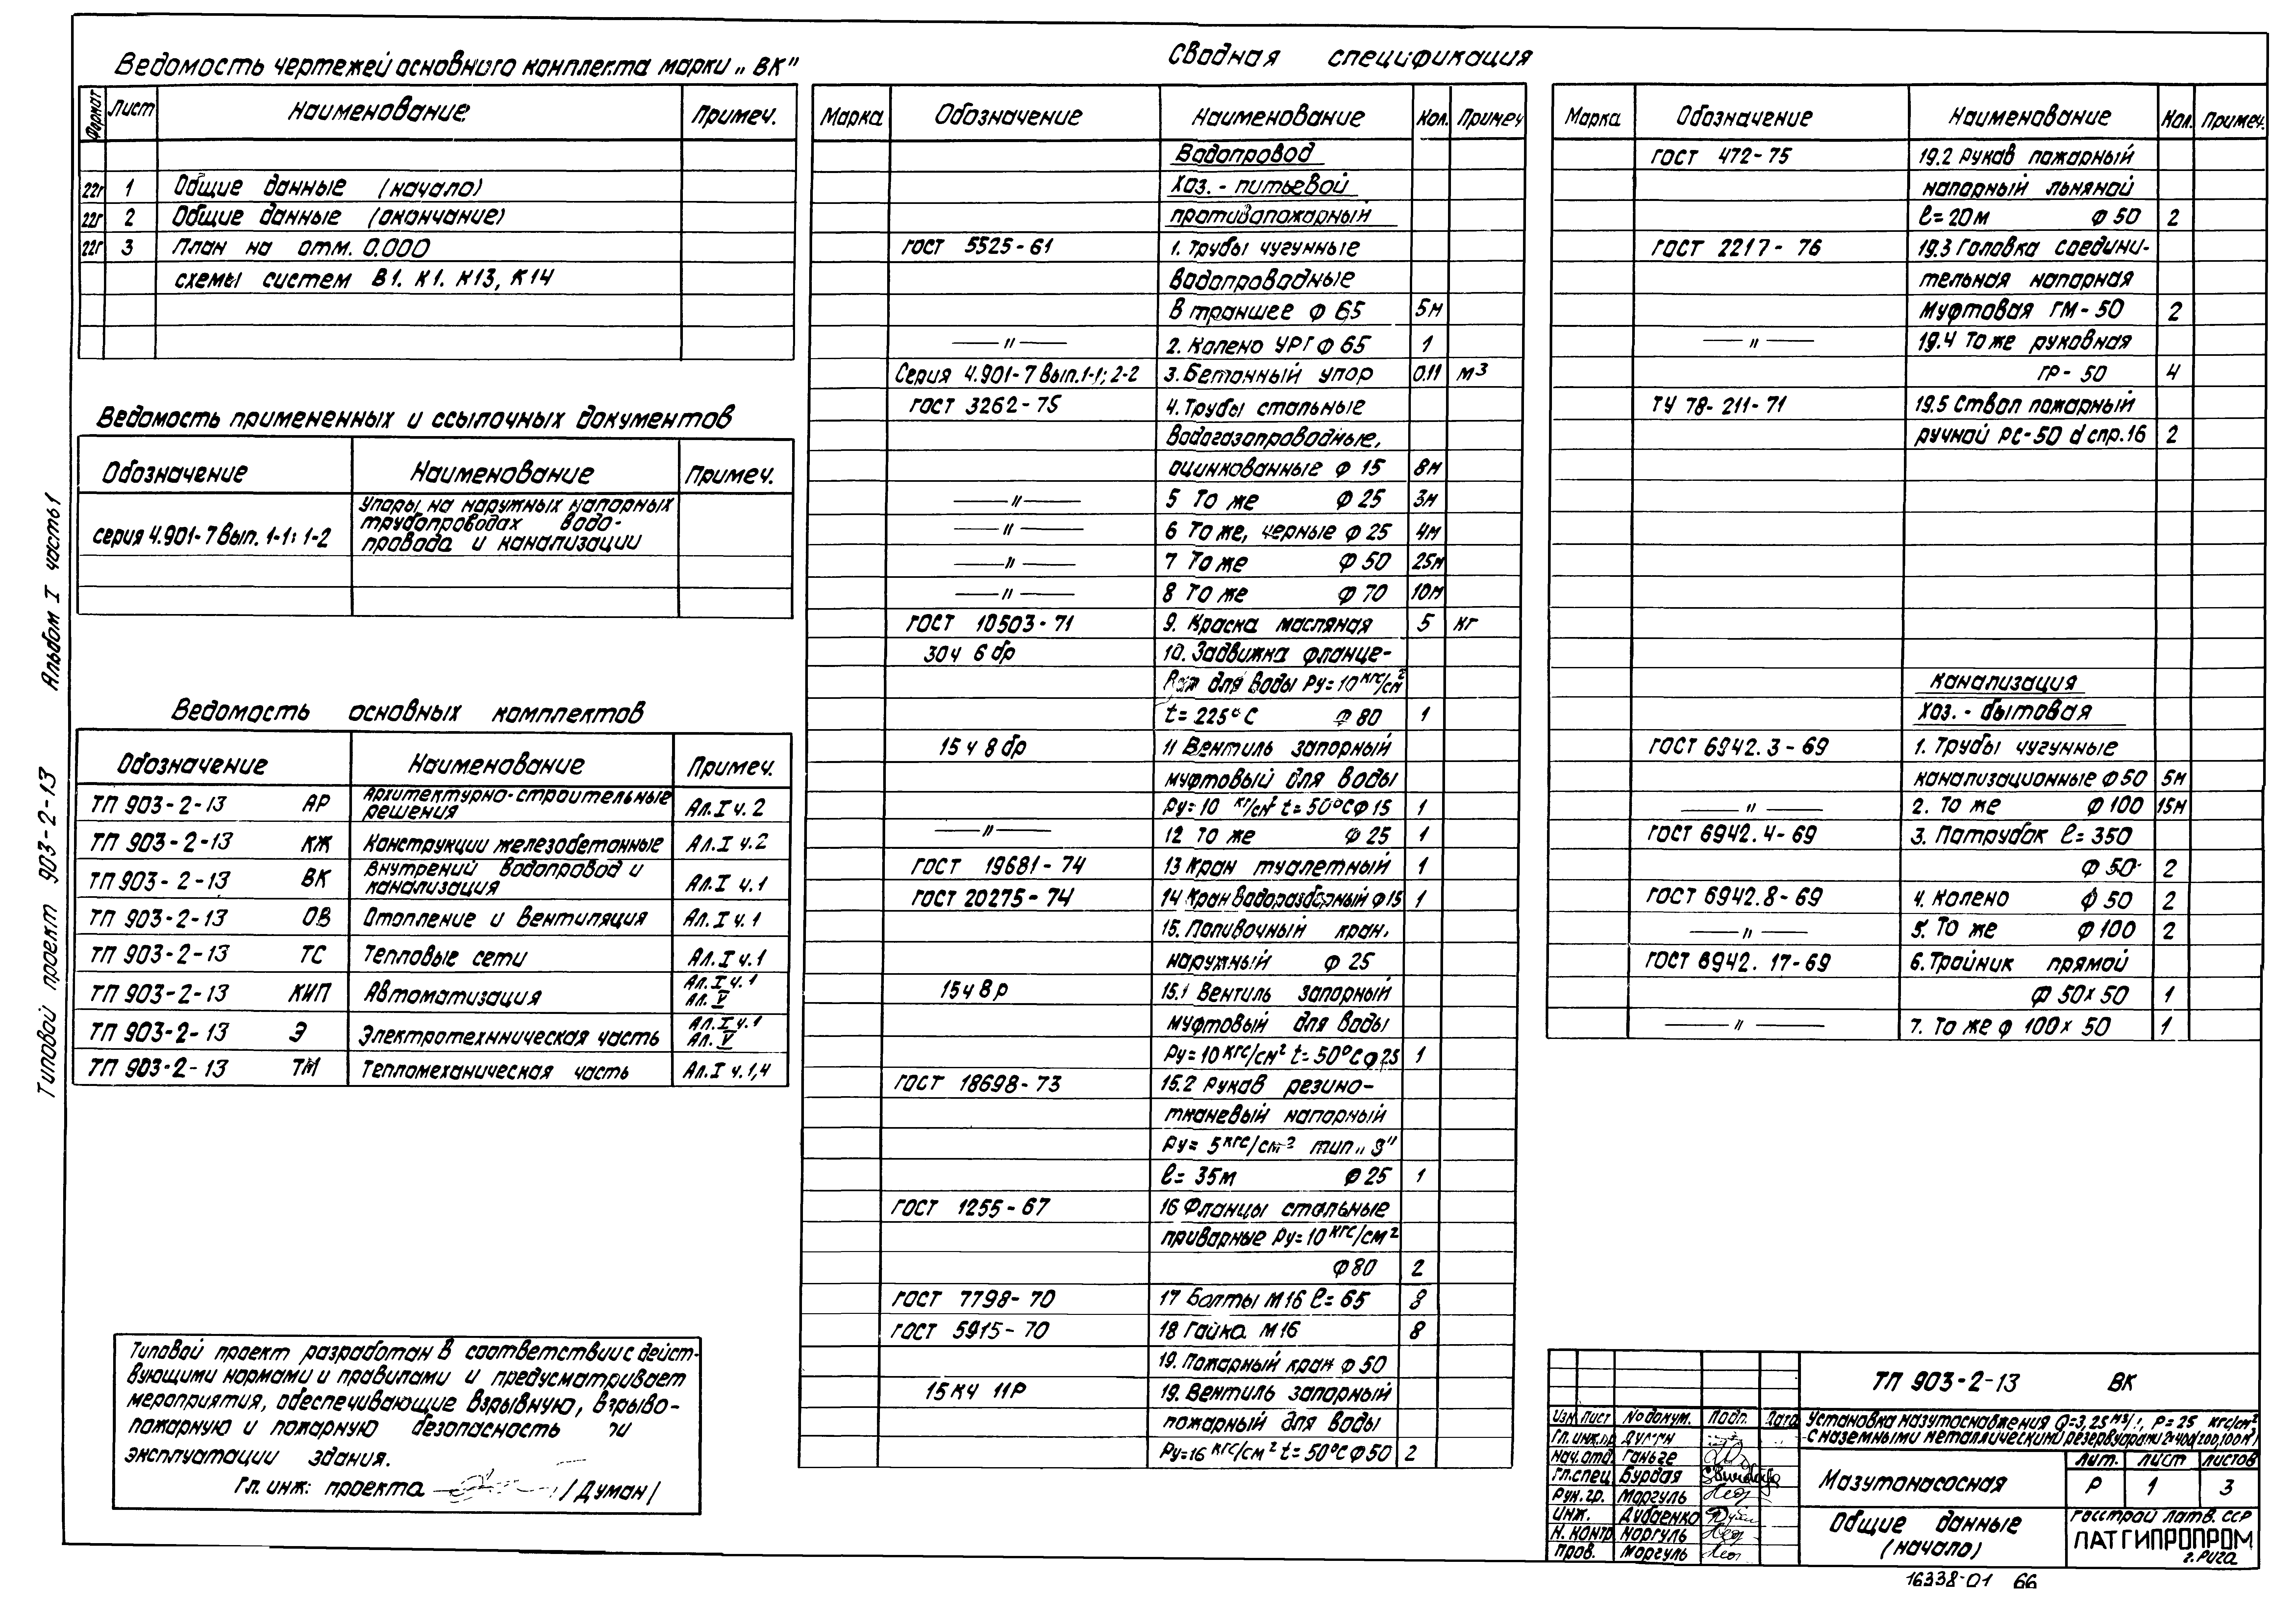 Ведомость чертежей основного комплекта марки „ВК"
Формат Лист Наименование Примеч.
22г 1 Общие данные (начало)
22г 2 Общие данные (окончание)
22г 3 План на отм. 0.000
схемы систем В1. К1. К13, К14
Ведомость примененных и ссылочных документов
Обозначение Наименование Примеч.
Упоры на наружных напорных
серия 4.901-7 Вып. 1-1; 1-2 трубопроводах водо-
провода и канализации
Ведомость основных комплектов
Обозначение Наименование Примеч.
ТП 903-2-13 АР Архитектурно-строительные решения Ал.I ч.2
ТП 903-2-13 КЖ Конструкции железобетонные Ал.I ч.2
ТП 903-2-13 ВК Внутрений водопровод и канализация Ал.I ч.1
ТП 903-2-13 ОВ Отопление и вентиляция Ал.I ч.1
ТП 903-2-13 ТС Тепловые сети Ал.I ч.1
ТП 903-2-13 КИП Автоматизация Ал.I ч.1 Ал. V
ТП 903-2-13 Э Электротехнническая часть Ал.I ч.1 Ал. V
ТП 903-2-13 ТМ Тепломеханическая часть Ал.I ч.1,4
Типовой проект разработан в соответствии с дейст-
вующими нормами и правилами и предусматривает
мероприятия, обеспечивающие взрывную, взрыво-
пожарную и пожарную безопасность
эксплуатации здания.
Гл. инж. проекта /Думан/
Типовой проект 903-2-13 Альбом I часть 1
Сводная спецификация
Марка Обозначение Наименование Кол. Примеч
Водопровод
Хоз.-питьевой
противопожарный
ГОСТ 5525-61 1. Трубы чугунные
водопроводные
в траншее ф 65 5м
—〃— 2. Колено УРГ ф 65 1
Серия 4.901-7 Вып.1-1; 2-2 3. Бетонный упор 0.11 м³
ГОСТ 3262-75 4. Трубы стальные
водогазопроводные,
оцинкованные ф 15 8м
—〃— 5 То же ф 25 3м
—〃— 6 То же, черные ф 25 4м
—〃— 7 То же ф 50 25м
—〃— 8 То же ф 70 10м
ГОСТ 10503-71 9. Краска масляная 5 кг
30ч 6 бр 10. Задвижка фланце-
вая для воды Ру=10 кгс/см²
t=225°С ф 80 1
15 ч 8 бр 11 Вентиль запорный
муфтовый для воды
Ру=10 кг/см² t=50°С ф 15 1
—〃— 12 То же ф 25 1
ГОСТ 19681-74 13 Кран туалетный 1
ГОСТ 20275-74 14 Кран водоразборный ф 15 1
15. Поливочный кран,
наружный ф 25
15ч 8р 15.1 Вентиль запорный
муфтовый для воды
Ру=10 кгс/см² t=50°С ф 25 1
ГОСТ 18698-73 15.2 Рукав резино-
тканевый напорный
Ру=5 кгс/см² тип „В"
ℓ=35м ф 25 1
ГОСТ 1255-67 16 Фланцы стальные
приварные Ру=10 кгс/см²
ф 80 2
ГОСТ 7798-70 17 Болты М16 ℓ=65 8
ГОСТ 5915-70 18 Гайка М16 8
19. Пожарный кран ф 50
15 кч 11р 19. Вентиль запорный
пожарный для воды
Ру=16 кгс/см² t=50°С ф 50 2
Марка Обозначение Наименование Кол. Примеч.
ГОСТ 472-75 19.2 Рукав пожарный
напорный льняной
ℓ=20м ф 50 2
ГОСТ 2217-76 19.3 Головка соедини-
тельная напорная
муфтовая ГМ-50 2
—〃— 19.4 То же рукавная
ГР-50 4
ТУ 78-211-71 19.5 Ствол пожарный
ручной РС-50 d спр.16 2
Канализация
Хоз.-бытовая
ГОСТ 6942.3-69 1. Трубы чугунные
канализационные ф 50 5м
—〃— 2. То же ф 100 15м
ГОСТ 6942.4-69 3. Патрубок ℓ=350
ф 50 2
ГОСТ 6942.8-69 4. Колено ф 50 2
—〃— 5. То же ф 100 2
ГОСТ 6942.17-69 6. Тройник прямой
ф 50х50 1
—〃— 7. То же ф 100х50 1
ТП 903-2-13 ВК
Изм Лист № докум. Подп. Дата
Установка мазутоснабжения Q=3,25 м³/ч, Р=25 кгс/см²
с наземными металлическими резервуарами 2×400(200,100м³)
Гл. инж.пр Думан
Нач. отд. Ганьге
Гл.спец. Бурдая
Рук. гр. Моргуль
Инж. Дибаенко
Н. контр Моргуль
Пров. Моргуль
Мазутонасосная
Лит. Лист Листов
Р 1 3
Общие данные
(начало)
Госстрой Латв. ССР
ЛАТГИПРОПРОМ
г. Рига
16338-01 66